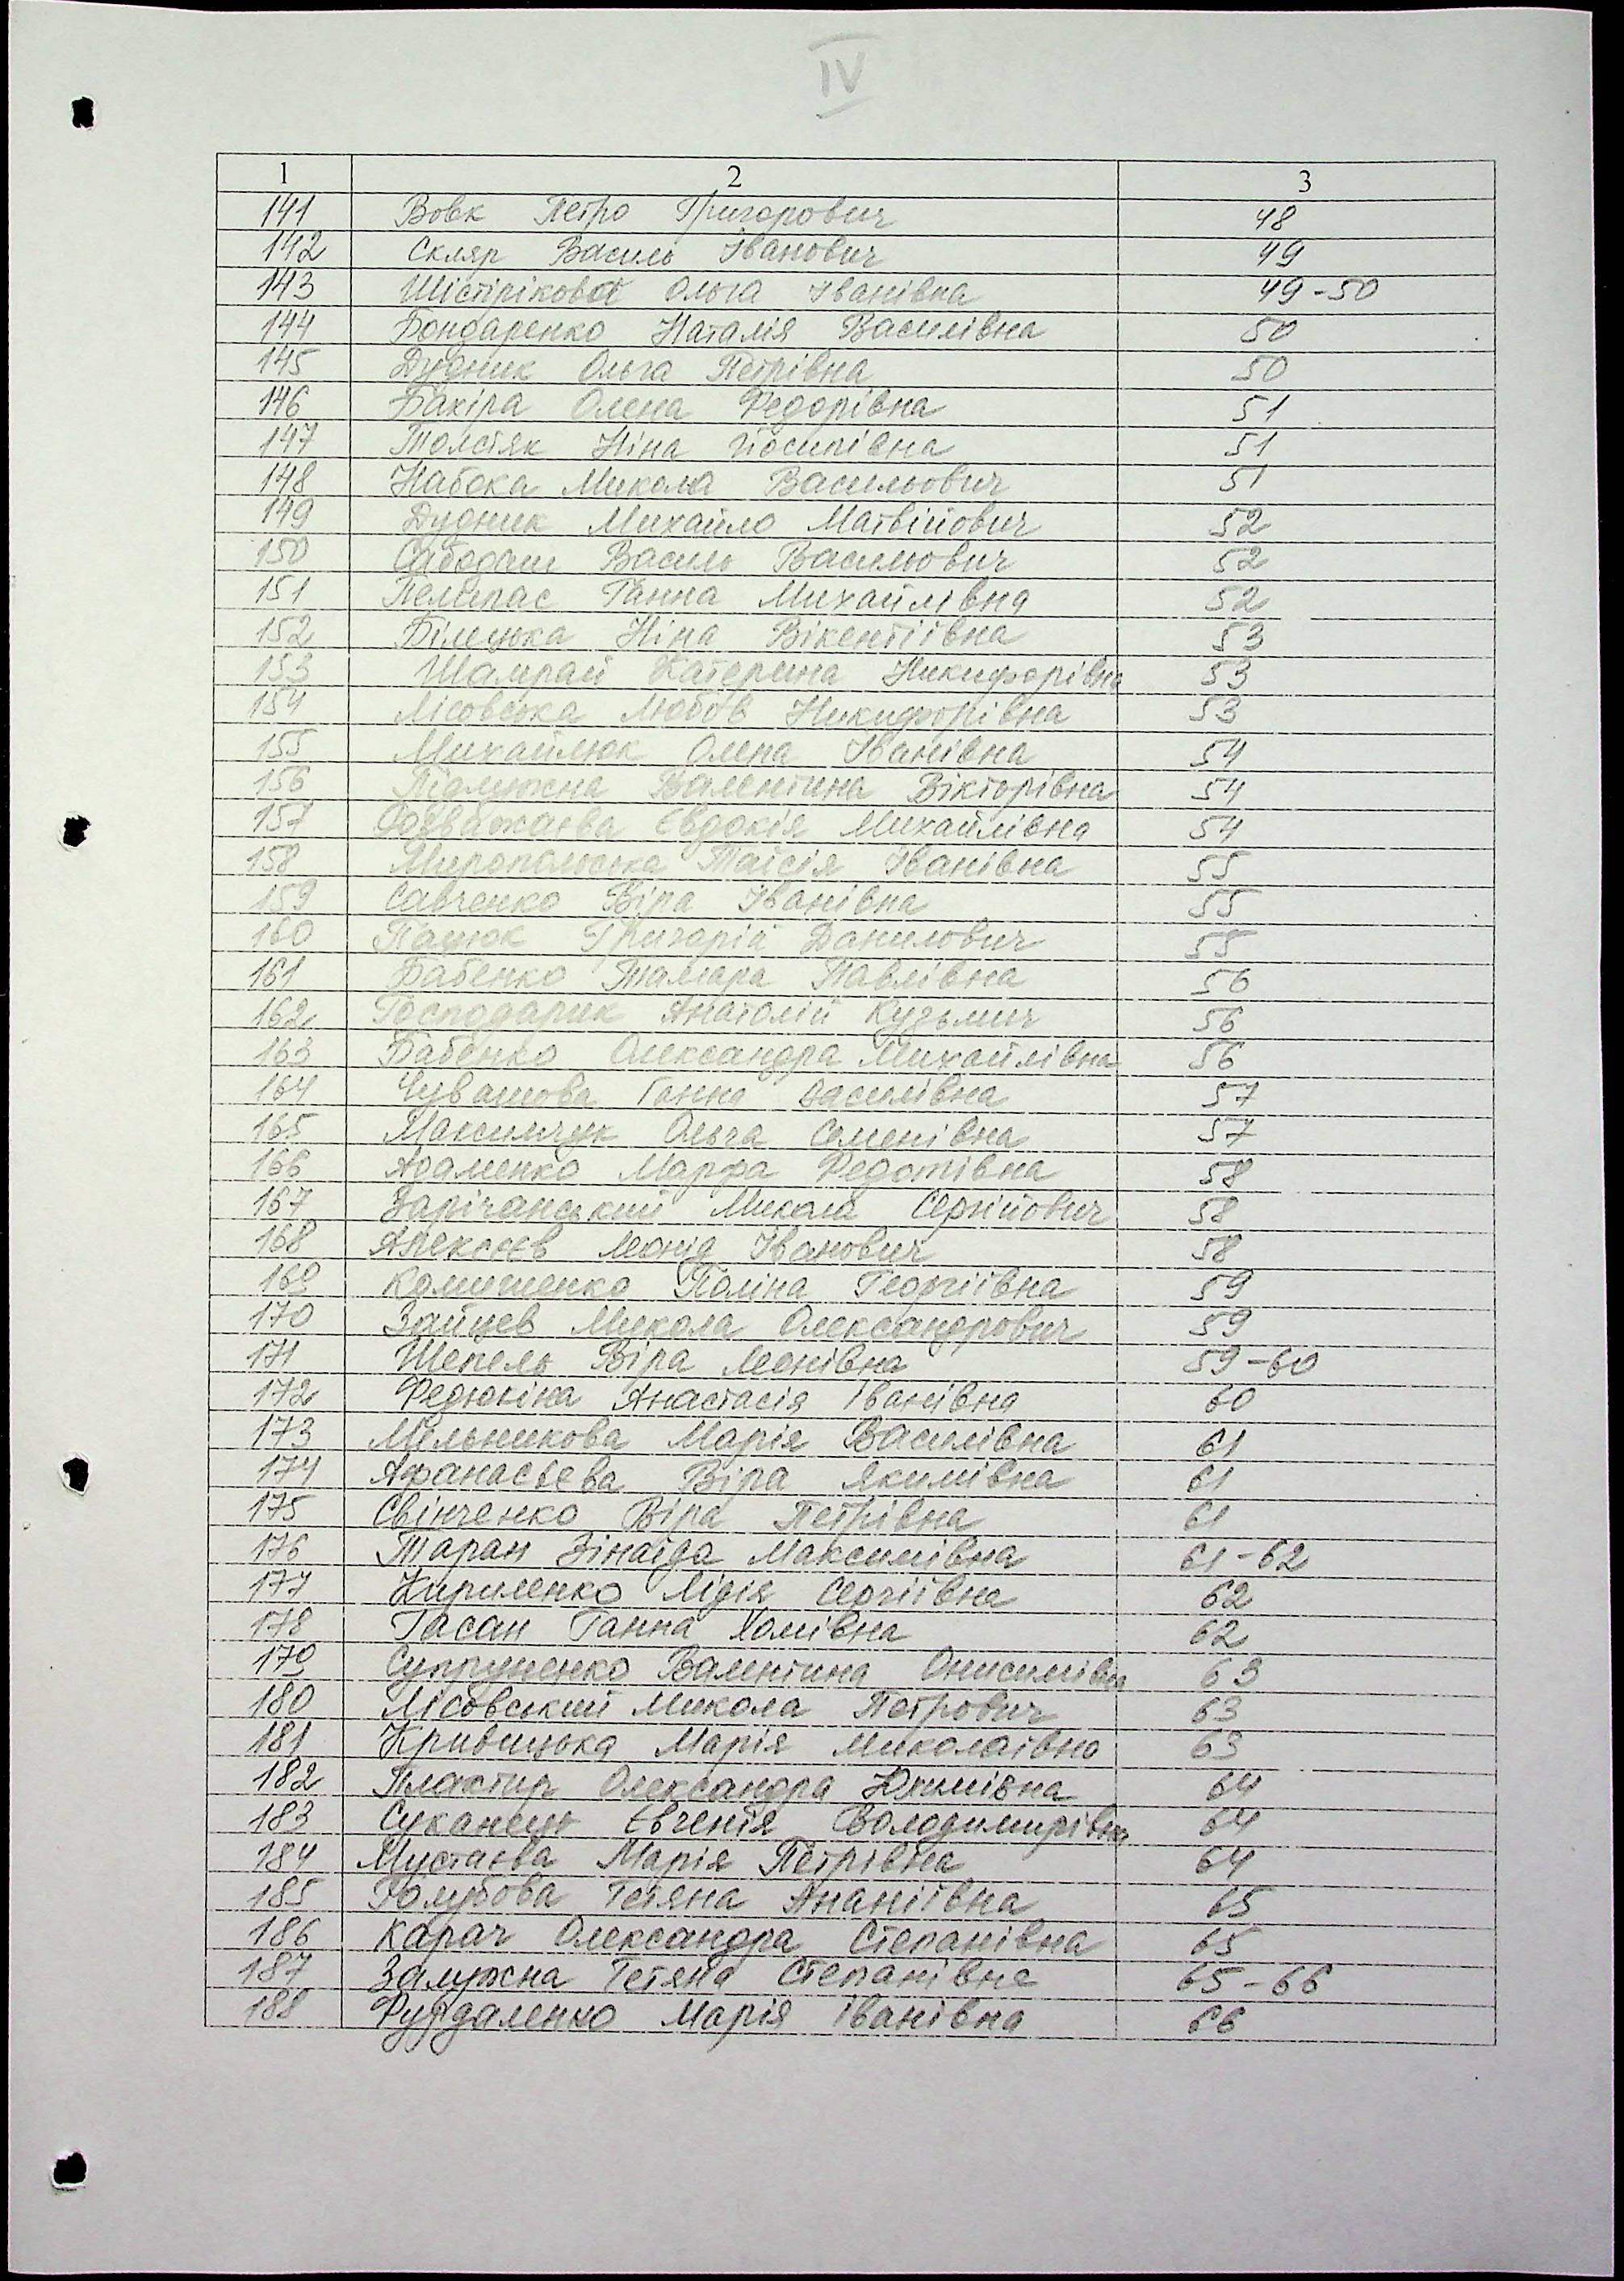 IV
1 2 3
141 Вовк Петро Григорович 48
142 Скляр Василь Іванович 49
143 Шістірікова Ольга Іванівна 49-50
144 Бондаренко Наталія Василівна 50
145 Дудник Ольга Петрівна 50
146 Бакіра Олена Федорівна 51
147 Толстяк Ніна Йосипівна 51
148 Набока Микола Васильович 51
149 Дудник Михайло Матвійович 52
150 Сабодаш Василь Васильович 52
151 Пелипас Ганна Михайлівна 52
152 Білецька Ніна Вікентіївна 53
153 Шамрай Катерина Никифорівна 53
154 Лісовська Любов Никифорівна 53
155 Михайлюк Олена Іванівна 54
156 Підлужна Валентина Вікторівна 54
157 Євдокія Михайлівна 54
158 Миропольська Таїсія Іванівна 55
159 Савченко Віра Іванівна 55
160 Пацюк Григорій Данилович 55
161 Бабенко Тамара Павлівна 56
162 Господарик Анатолій Кузьмич 56
163 Бабенко Олександра Михайлівна 56
164 Чувашова Ганна Василівна 57
165 Максимчук Ольга Семенівна 57
166 Адаменко Марфа Федотівна 58
167 Зарічанський Микола Сергійович 58
168 Алексєєв Леонід Іванович 58
169 Комишенко Поліна Георгіївна 59
170 Зайцев Микола Олександрович 59
171 Шепель Віра Леонівна 59-60
172 Федюкіна Анастасія Іванівна 60
173 Мельникова Марія Василівна 61
174 Афанасьєва Віра Якимівна 61
175 Свінченко Віра Петрівна 61
176 Таран Зінаїда Максимівна 61-62
177 Кириленко Лідія Сергіївна 62
178 Гасан Ганна Хомівна 62
179 Супруненко Валентина Онисимівна 63
180 Лісовський Микола Петрович 63
181 Кривицька Марія Миколаївна 63
182 Пластир Олександра Юхимівна 64
183 Суканець Євгенія Володимирівна 64
184 Мустаєва Марія Петрівна 64
185 Голубова Тетяна Ананіївна 65
186 Карач Олександра Степанівна 65
187 Залужна Тетяна Степанівна 65-66
188 Фурдаленко Марія Іванівна 66